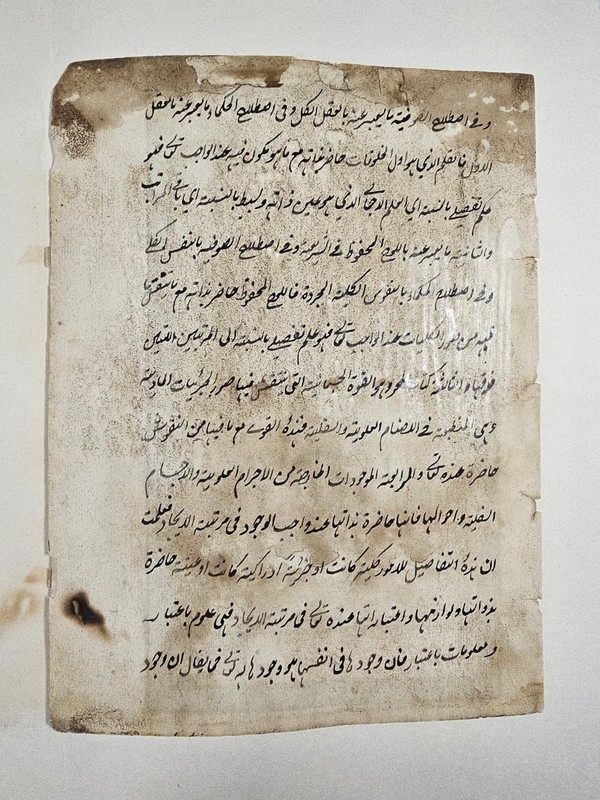 وفي اصطلاح الصوفية ما يعبر عنه بالعقل الكل وفي اصطلاح الحكماء ما يعبر عنه بالعقل
الاول فالقلم الذي هو اول المخلوقات حاضر بذاته مع ما هو مكون فيه عند الواجب تعالى فهو
علم تفصيلي بالنسبة اي العلم الاجمالي الذي هو عين ذاته وبسيط بالنسبة اي باقي المراتب
والثانية ما يعبر عنه باللوح المحفوظ في الشريعة وفي اصطلاح الصوفية بالنفس الكلي
وفي اصطلاح الحكماء بالنفوس الكلية المجردة فاللوح المحفوظ حاضر بذاته مع ما ينتقش
فيه من صور الكليات عند الواجب تعالى فهو علم تفصيلي بالنسبة الى المرتبتين اللتين
فوقها والثالثة كتاب المحو وهو القوة الجسمانية التي ينتقش فيها صور الجزئيات المادية
وهي المنطبعة في الاجسام العلوية والسفلية فهذه القوى مع ما فيها من النقوش
حاضرة عنده تعالى والرابعة الموجودات الخارجة من الاجرام العلوية والاجسام
السفلية واحوالها فانها حاضرة بذاتها عند واجب الوجود في مرتبة الايجاد فعلمت
ان هذه التفاصيل للامور كلية كانت او جزئية ادراكية كانت او عينية حاضرة
بذواتها ولوازمها واعتباراتها عنده تعالى في مرتبة الايجاد فهي علوم باعتبار
ومعلومات باعتبار فان وجودها في انفسها هو وجودها له تعالى فما يقال ان وجود